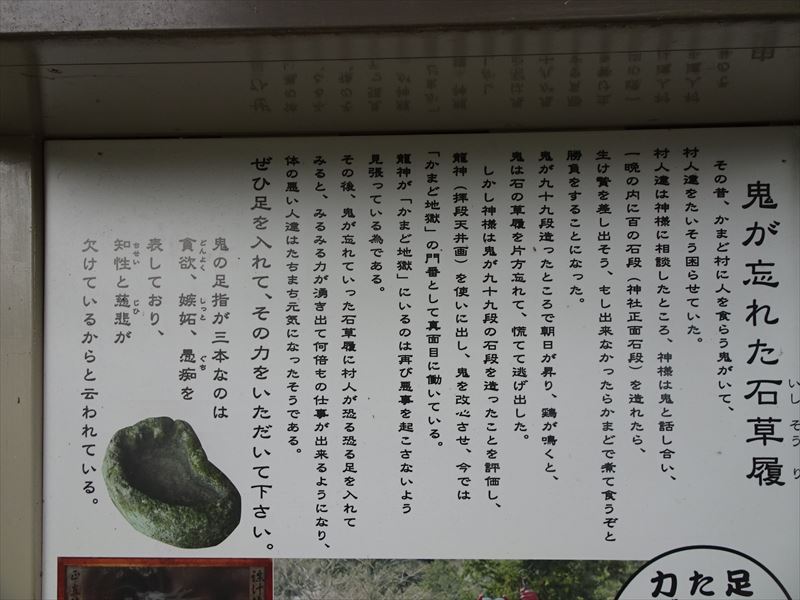 鬼が忘れた石草履
いしそうり
その昔、かまど村に人を食らう鬼がいて、
村人達をたいそう困らせていた。
村人達は神様に相談したところ、神様は鬼と話し合い、
一晩の内に百の石段（神社正面石段）を造れたら、
生け贄を差し出そう、もし出来なかったらかまどで煮て食うぞと
勝負をすることになった。
鬼が九十九段造ったところで朝日が昇り、鶏が鳴くと、
鬼は石の草履を片方忘れて、慌てて逃げ出した。
しかし神様は鬼が九十九段の石段を造ったことを評価し、
龍神（拝殿天井画）を使いに出し、鬼を改心させ、今では
「かまど地獄」の門番として真面目に働いている。
龍神が「かまど地獄」にいるのは再び悪事を起こさないよう
見張っている為である。
その後、鬼が忘れていった石草履に村人が恐る恐る足を入れて
みると、みるみる力が湧き出て何倍もの仕事が出来るようになり、
体の悪い人達はたちまち元気になったそうである。
ぜひ足を入れて、その力をいただいて下さい。
鬼の足指が三本なのは
貪欲、嫉妬、愚痴を
どんよく しっと ぐち
表しており、
知性と慈悲が
ちせい じひ
欠けているからと云われている。
足
た
力